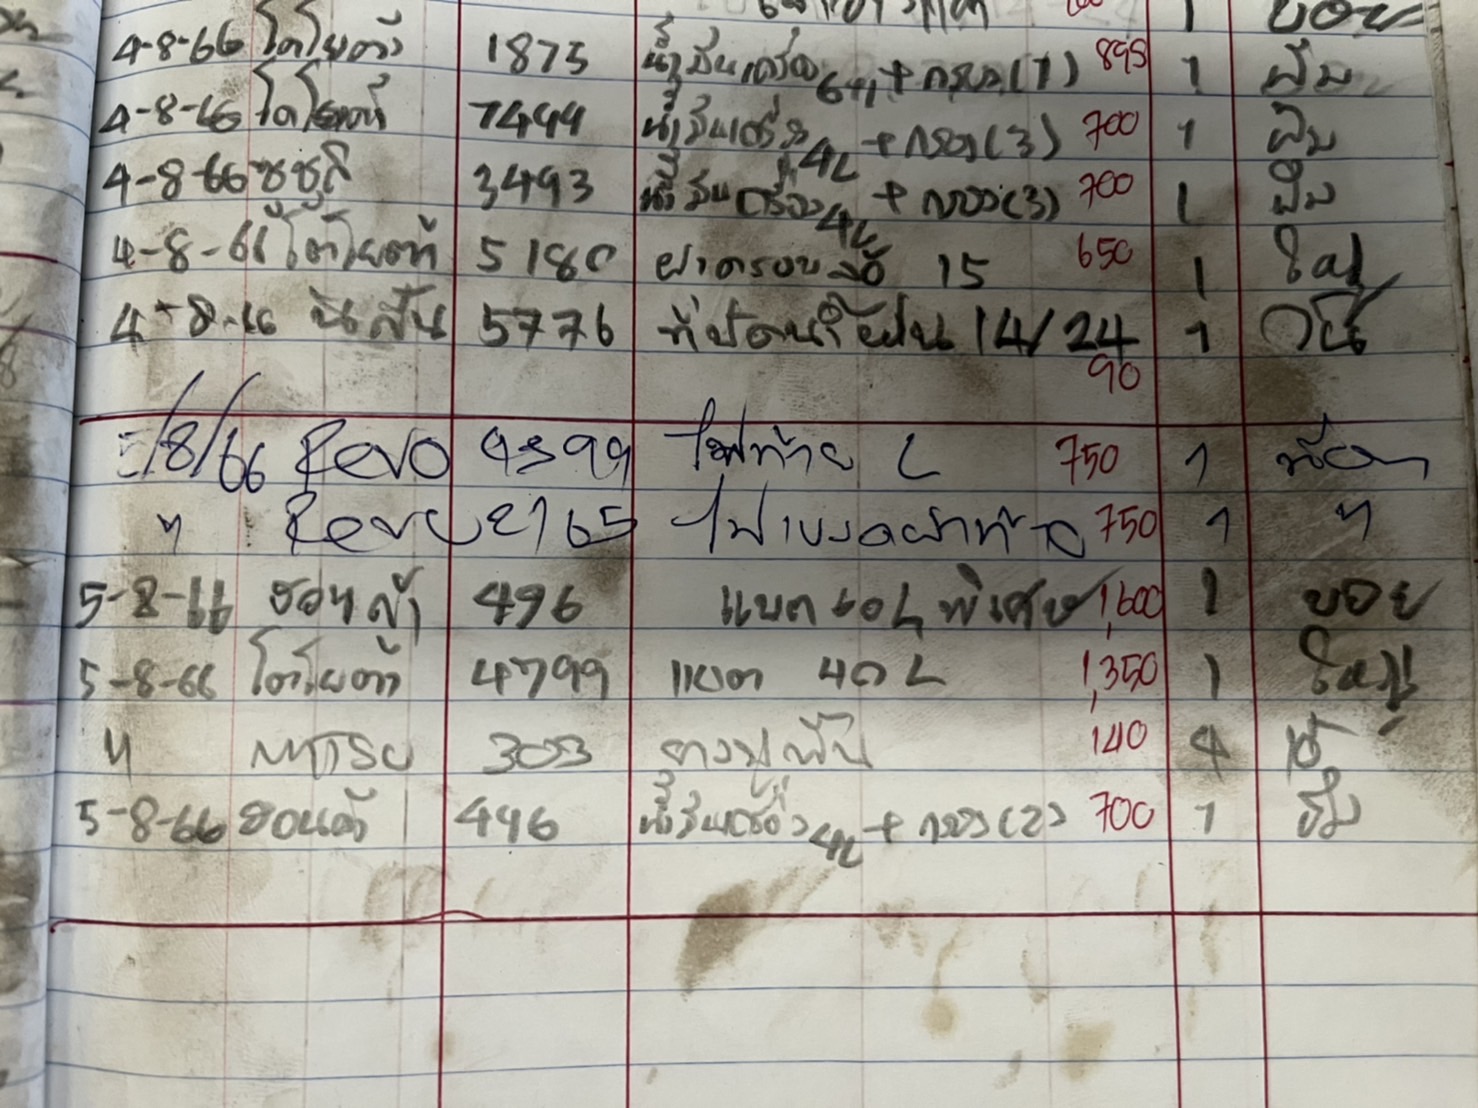 4-8-66 โตโยต้า 1875 น้ำมันเครื่อง 6 + กรอง(1) 895 1 ปืม
4-8-66 โตโยต้า 7499 น้ำมันเครื่อง 4L + กรอง(3) 700 1 ปืม
4-8-66 ซูซูกิ 3493 น้ำมันเครื่อง 4L + กรอง(3) 700 1 ปืม
4-8-66 โตโยต้า 5180 ฝาครอบล้อ 15 650 1 ใหญ่
4-8-66 นิสสัน 5776 ที่ปัดน้ำฝน 14/24 1
90
5/8/66 Revo 9399 ไฟท้าย L 750 1
" Revo 2165 ไฟเบรคฝาท้าย 750 1 "
5-8-66 ฮอนด้า 496 แบต 60L พิเศษ 1,600 1 บอย
5-8-66 โตโยต้า 4799 แบต 40L 1,350 1 ใหญ่
" 303 140 4
5-8-66 ฮอนด้า 496 น้ำมันเครื่อง 4L + กรอง(2) 700 1 ปืม